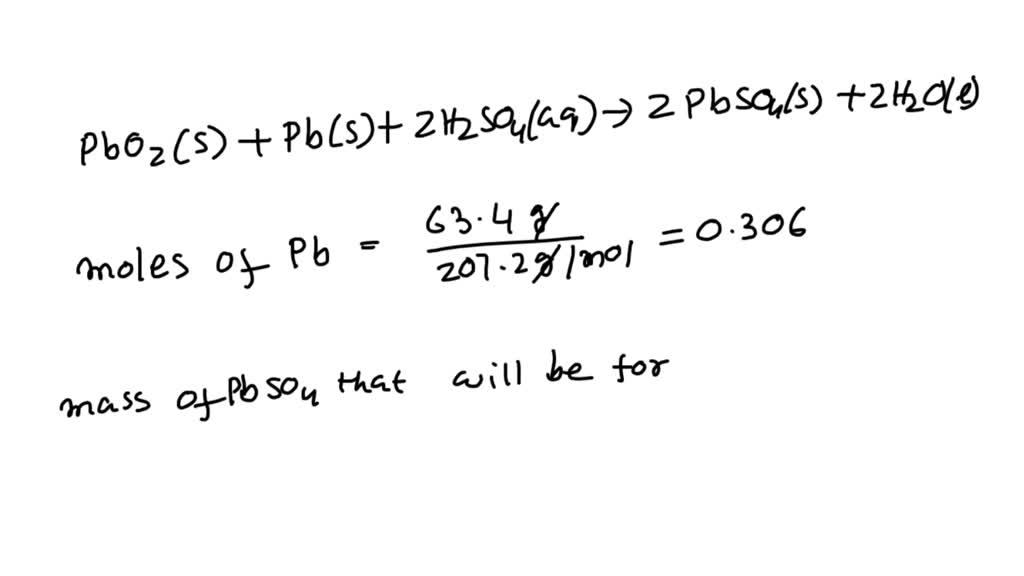 PbO₂(s) + Pb(s) + 2H₂SO₄(aq) → 2 PbSO₄(s) + 2H₂O(l)
moles of Pb = 63.4 g / 207.2 g/mol = 0.306
mass of PbSO₄ that will be for